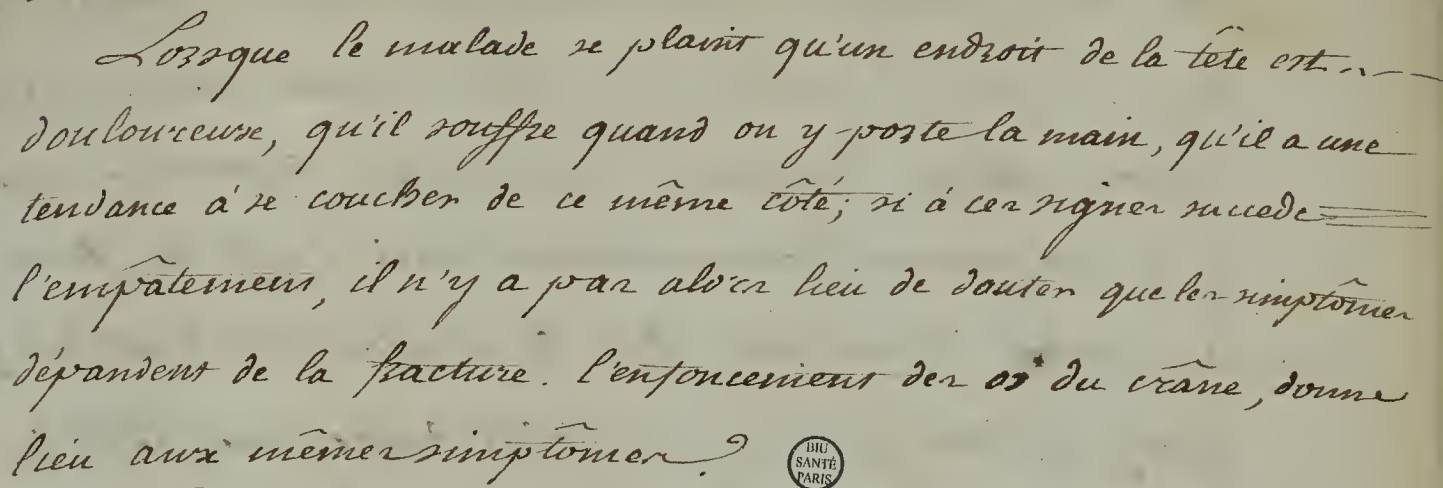 Lorsque le malade se plaint qu'un endroit de la tête est
douloureuse, qu'il souffre quand on y porte la main, qu'il a une
tendance á se coucher de ce même côté; si á ces signes succede
l'empâtement, il n'y a pas alors lieu de douter que les simptômes
dépandent de la fracture. l'enfoncement des os du crâne, donne
lieu aux mêmes simptômes?
BIU
SANTÉ
PARIS